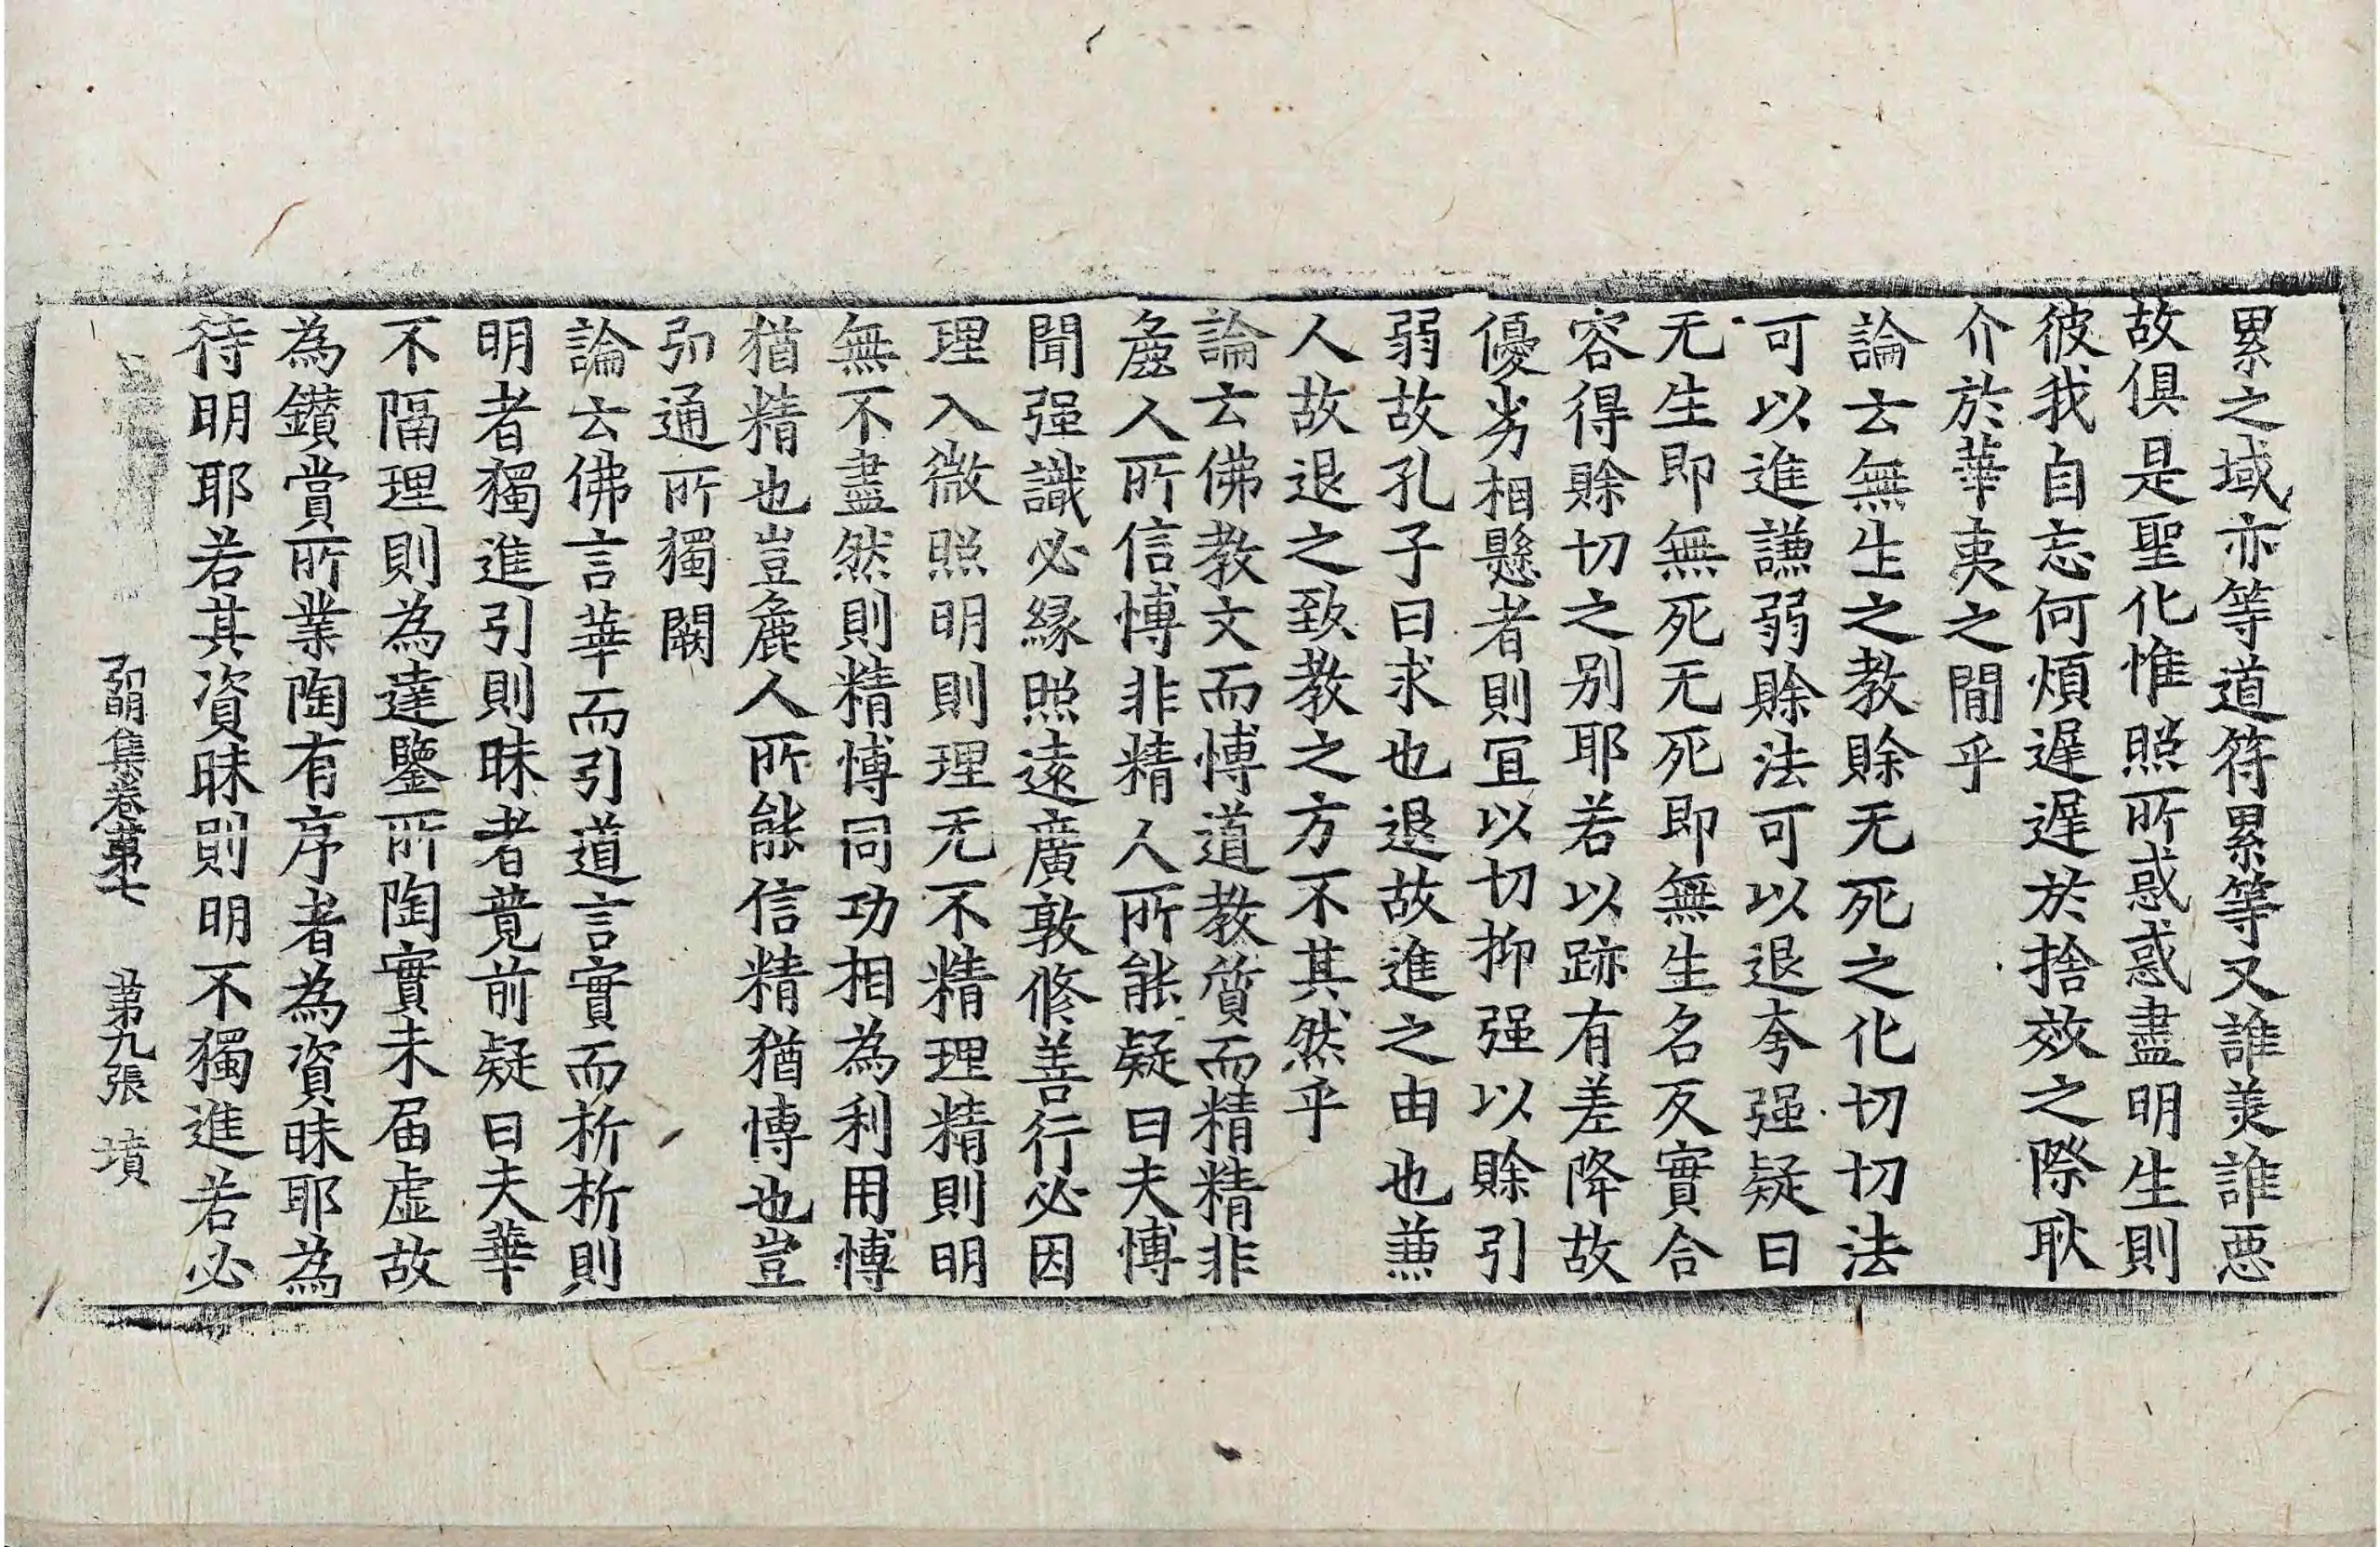 累之域亦等道符累等又誰美誰惡
故俱是聖化惟照所惑惑盡明生則
彼我自忘何煩遲遲於捨效之際耿
介於華夷之間乎
論云無生之教賒无死之化切切法
可以進謙弱賒法可以退夸强疑曰
无生即無死无死即無生名反實合
容得賒切之別耶若以跡有差降故
優劣相懸者則宜以切抑强以賒引
弱故孔子曰求也退故進之由也兼
人故退之致教之方不其然乎
論云佛教文而愽道教質而精精非
麁人所信愽非精人所能疑曰夫愽
聞强識必緣照遠廣敦修善行必因
理入微照明則理无不精理精則明
無不盡然則精愽同功相為利用愽
猶精也豈麁人所能信精猶愽也豈
弘通所獨闕
論云佛言華而引道言實而析析則
明者獨進引則昧者竟前疑曰夫華
不隔理則為達鑒所陶實未届虛故
為鑽賞所業陶有序者為資昧耶為
待明耶若其資昧則明不獨進若必
弘明集卷第七 第九張 墳